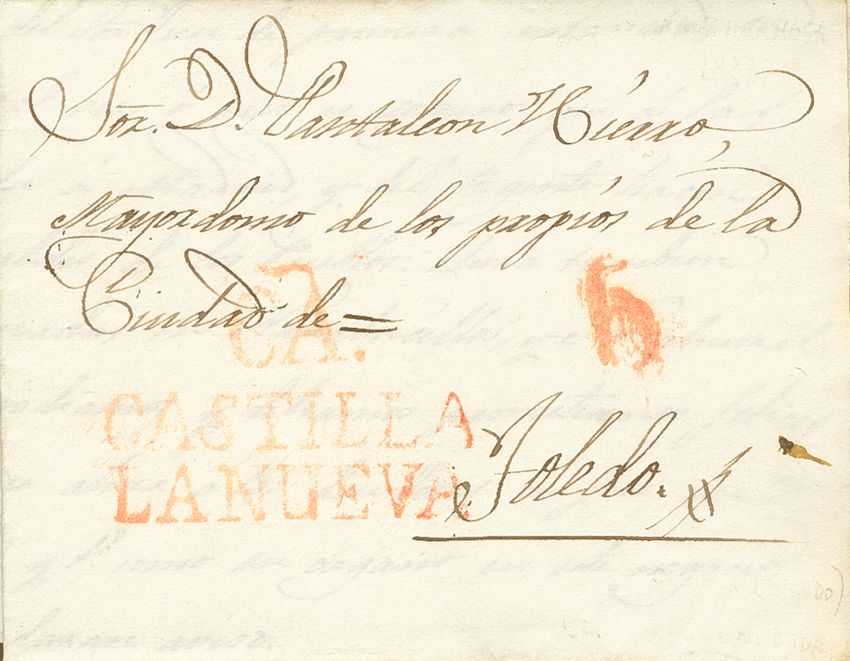 Sor. D. Pantaleon Hierro,
Mayordomo de los propios de la
Ciudad de =
CA.
6
CASTILLA
LANUEVA.
Toledo.